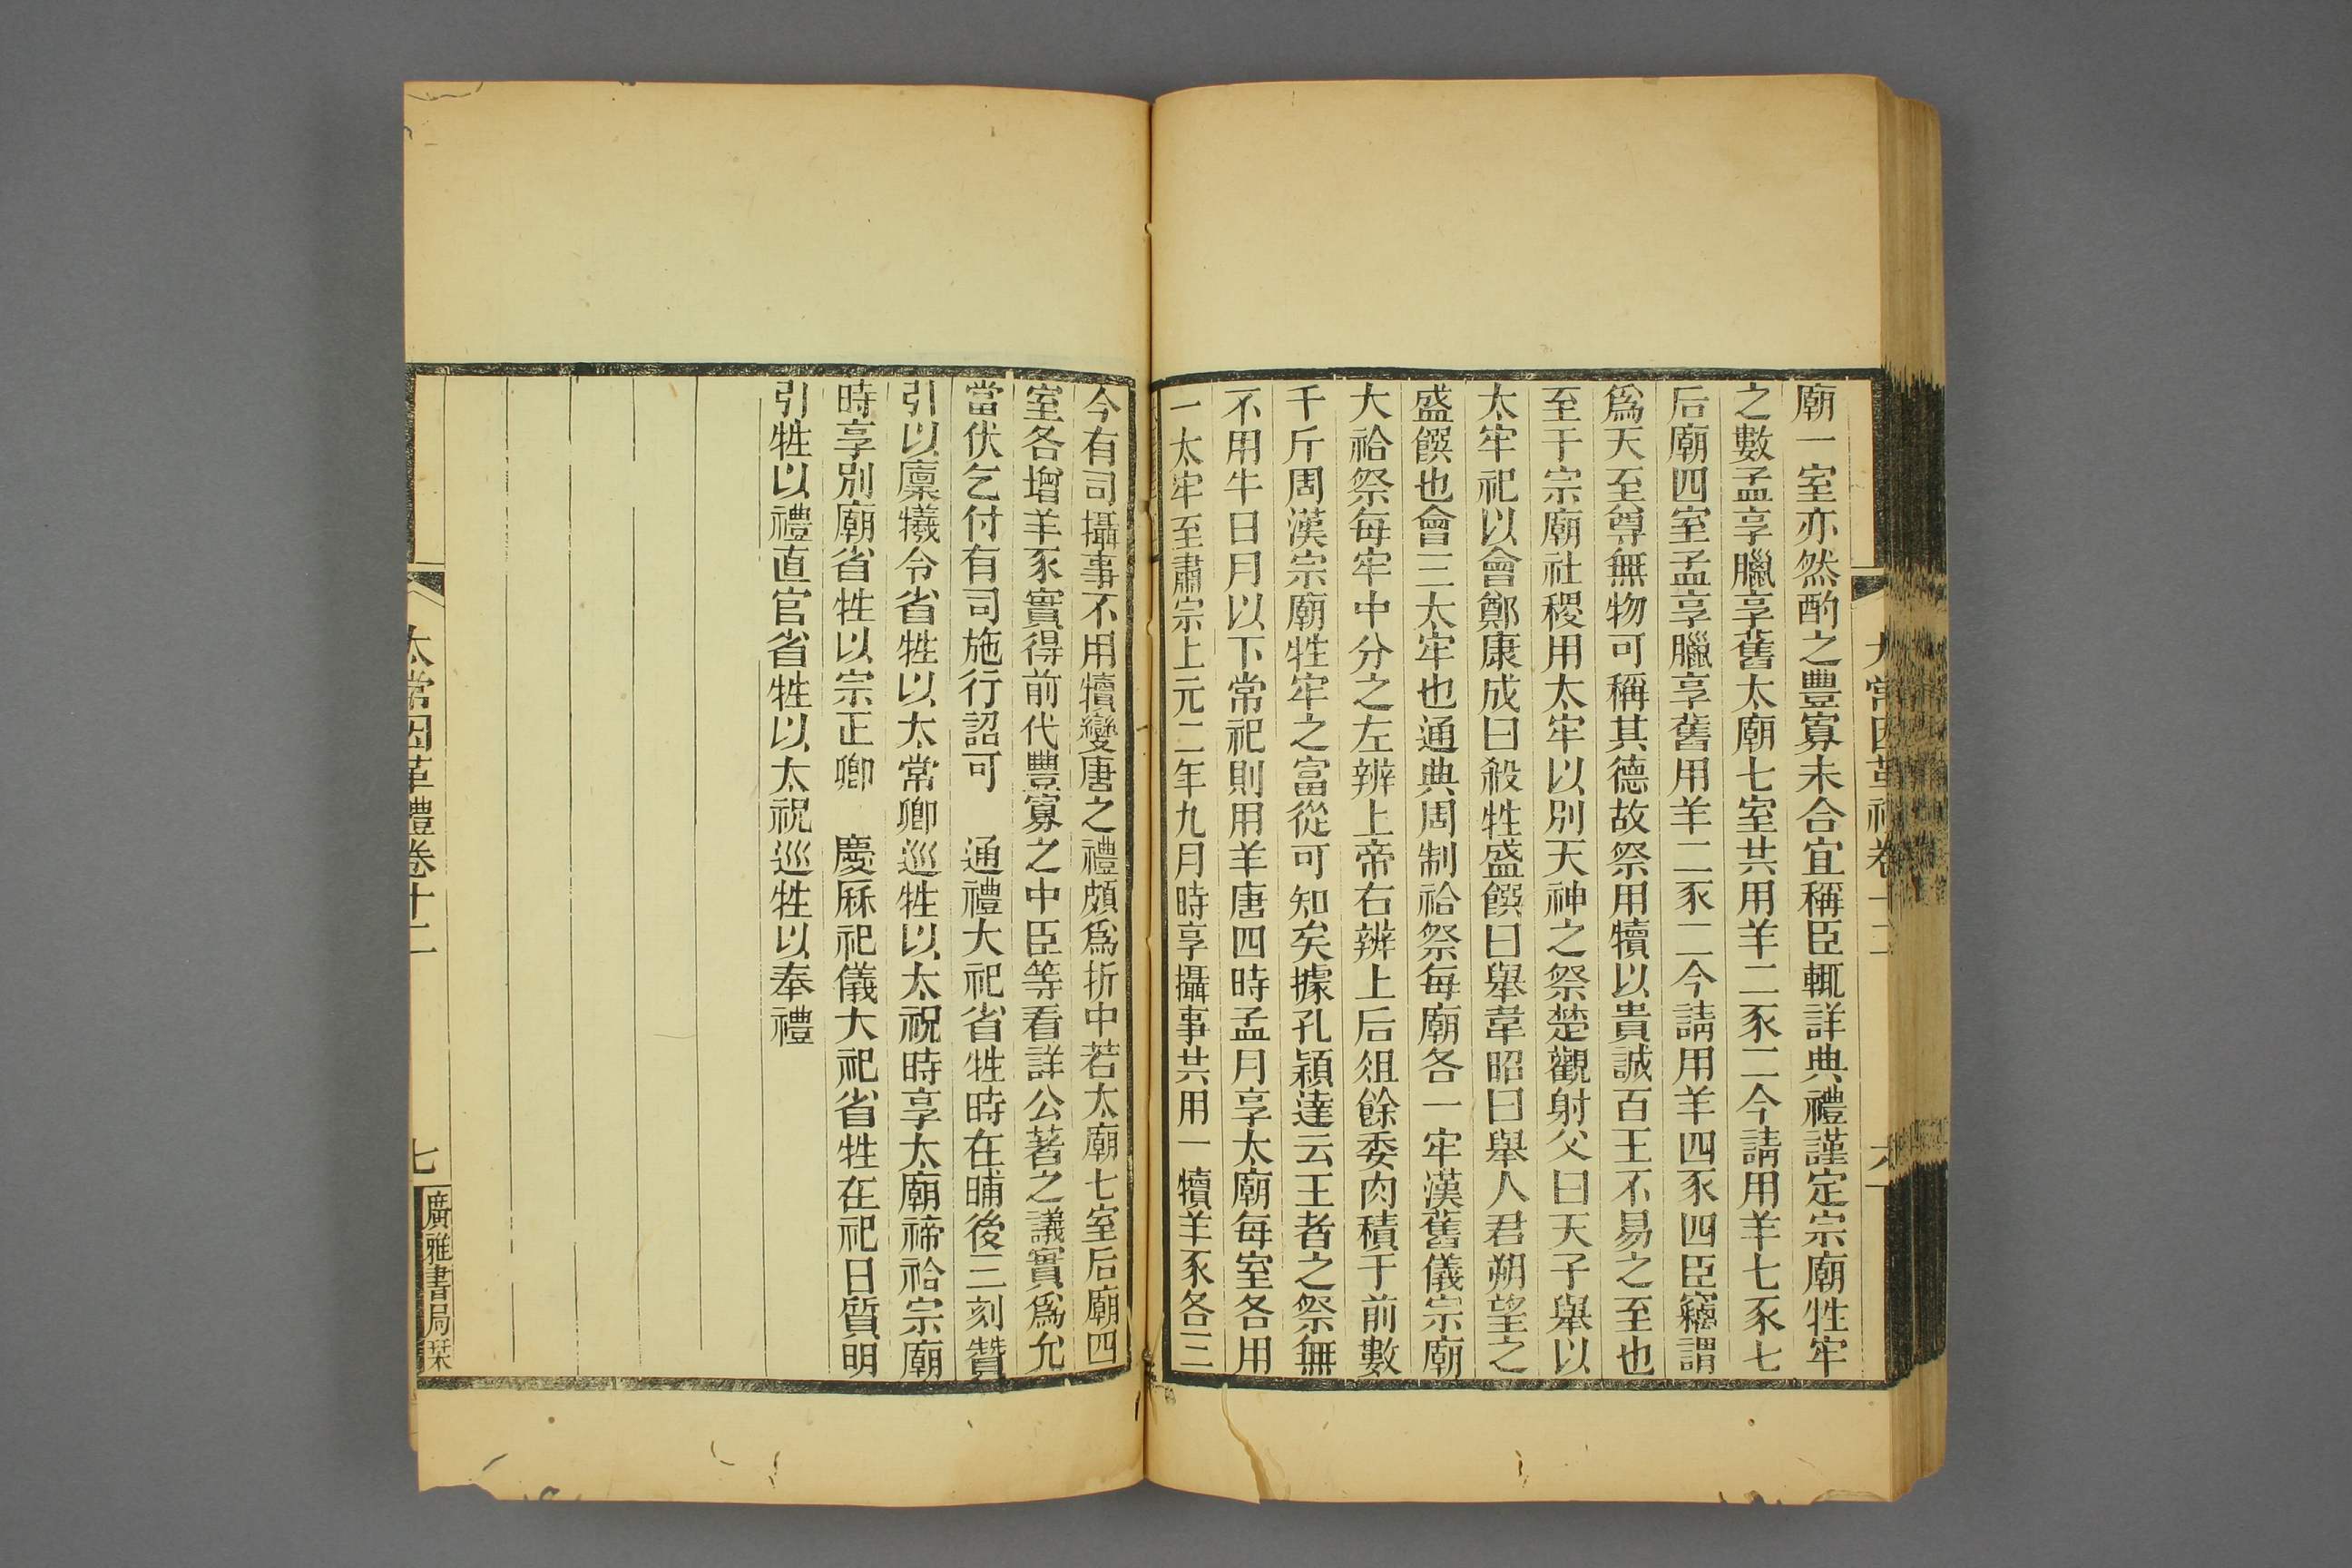 廟一室亦然酌之豐寡未合宜稱臣輒詳典禮謹定宗廟牲牢
之數孟享臘享舊太廟七室共用羊二豕二今請用羊七豕七
后廟四室孟享臘享舊用羊二豕二今請用羊四豕四臣竊謂
爲天至尊無物可稱其德故祭用犢以貴誠百王不易之至也
至于宗廟社稷用太牢以別天神之祭楚觀射父曰天子舉以
太牢祀以會鄭康成曰殺牲盛饌曰舉韋昭曰舉人君朔望之
盛饌也會三太牢也通典周制祫祭每廟各一牢漢舊儀宗廟
大祫祭每牢中分之左辨上帝右辨上后俎餘委肉積于前數
千斤周漢宗廟牲牢之富從可知矣據孔穎達云王者之祭無
不用牛日月以下常祀則用羊唐四時孟月享太廟每室各用
一太牢至肅宗上元二年九月時享攝事共用一犢羊豕各三
今有司攝事不用犢變唐之禮頗爲折中若太廟七室后廟四
室各增羊豕實得前代豐寡之中臣等看詳公著之議實爲允
當伏乞付有司施行詔可　通禮大祀省牲時在晡後三刻贊
引以廩犧令省牲以太常卿巡牲以太祝時享太廟禘祫宗廟
時享別廟省牲以宗正卿　慶厤祀儀大祀省牲在祀日質明
引牲以禮直官省牲以太祝巡牲以奉禮
太常因革禮卷十二
七
廣雅書局栞